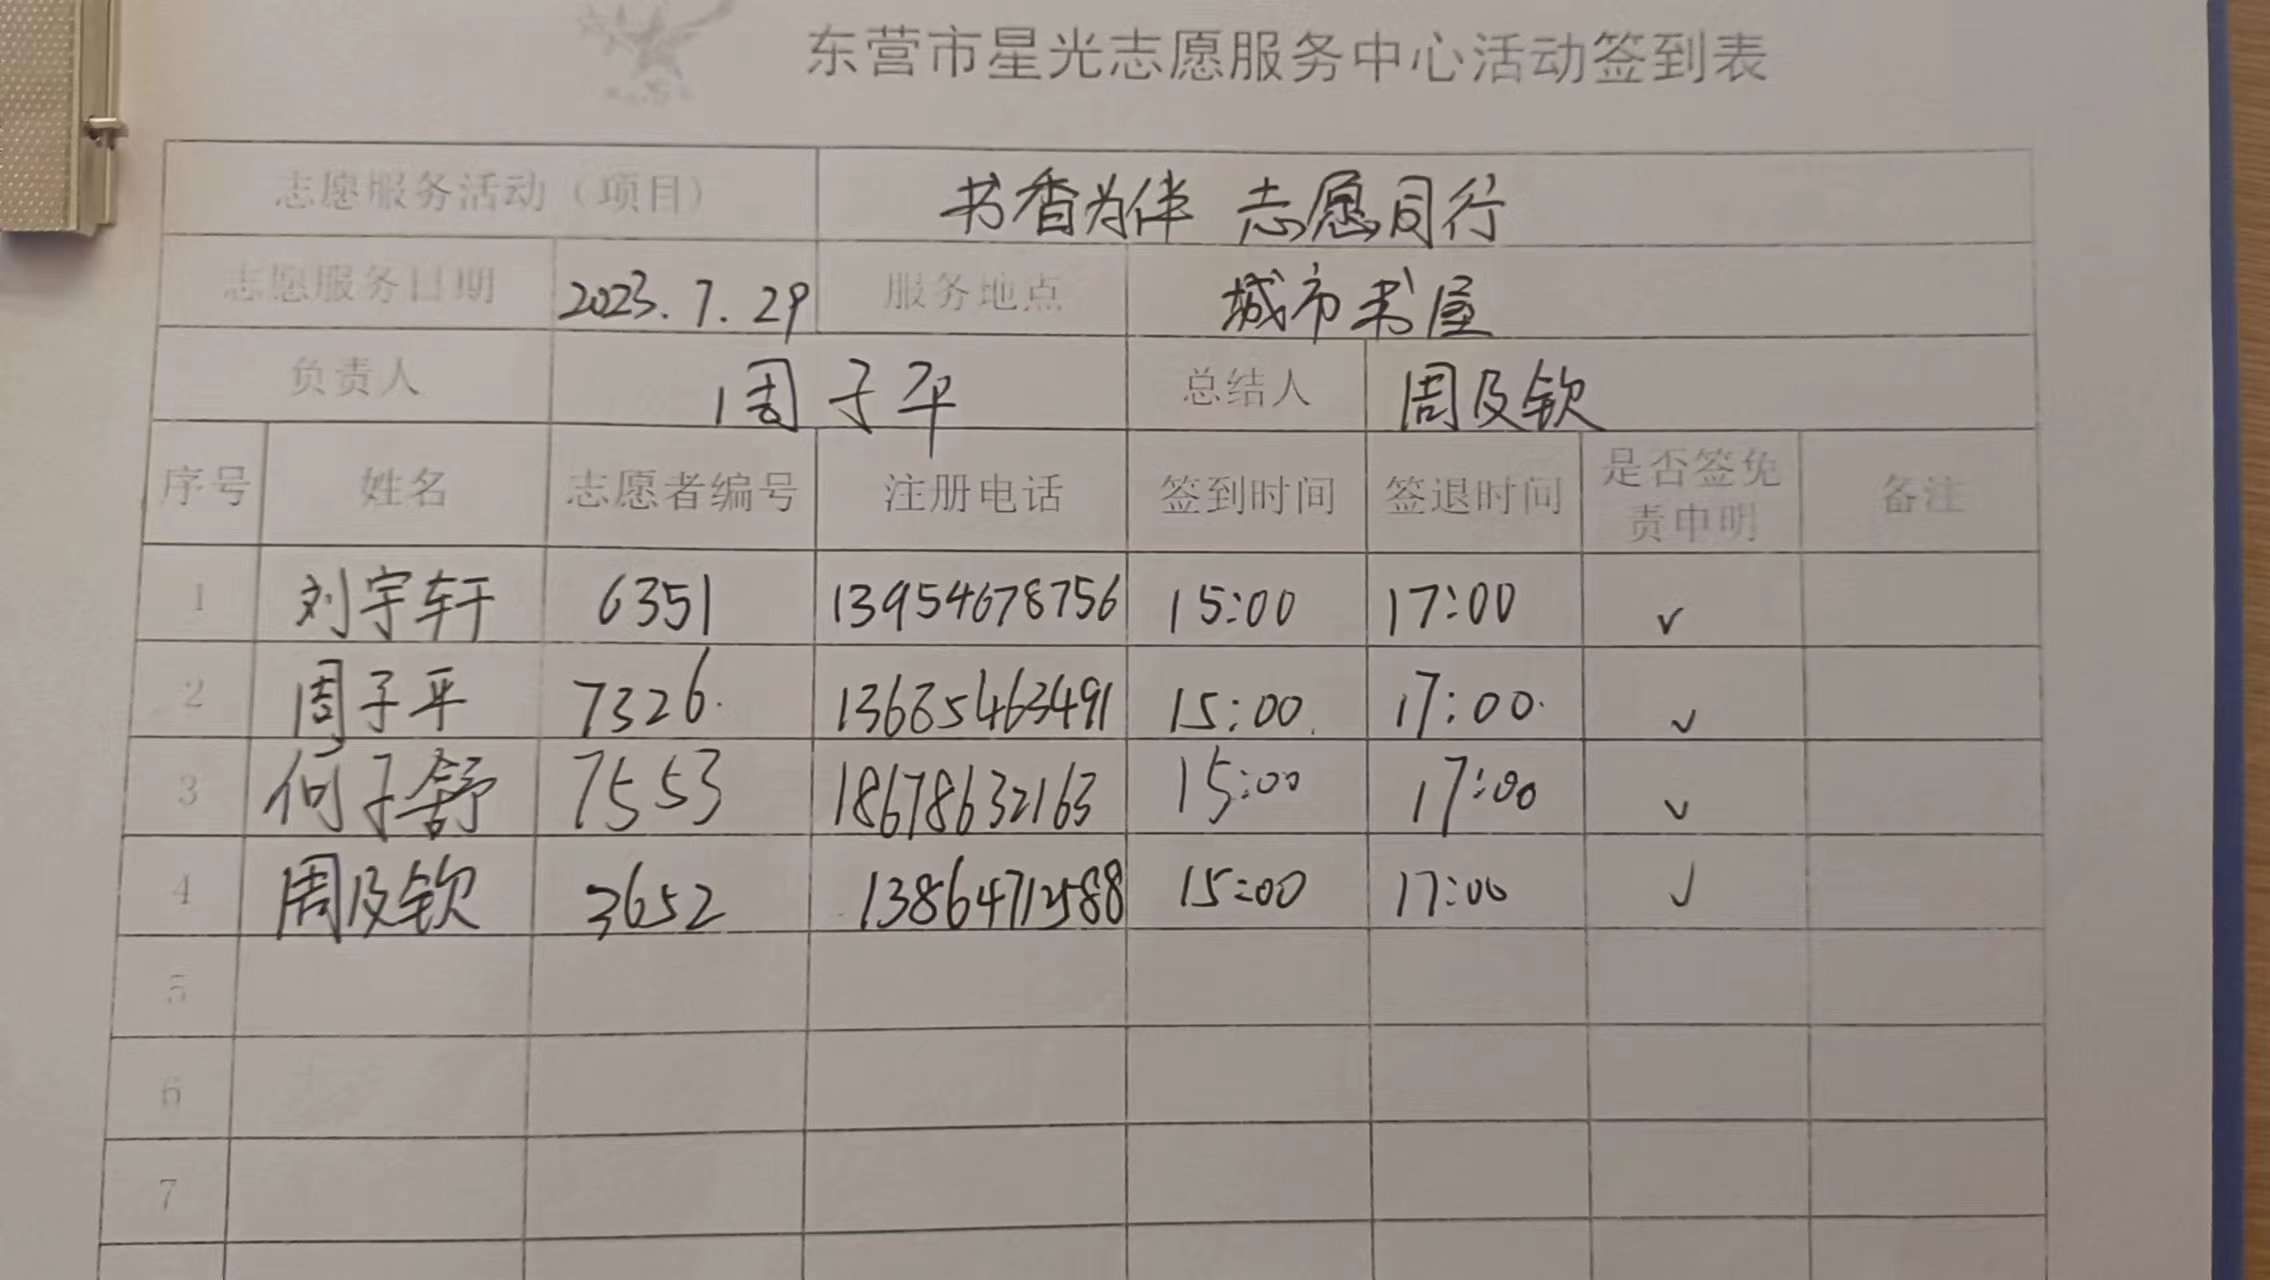 东营市星光志愿服务中心活动签到表
志愿服务活动（项目） 书香为伴 志愿同行
志愿服务日期 2023.7.29 服务地点 城市书屋
负责人 周子平 总结人 周及钦
序号 姓名 志愿者编号 注册电话 签到时间 签退时间 是否签免责申明 备注
1 刘宇轩 6351 13954678756 15:00 17:00 ✓
2 周子平 7326. 13685463491 15:00. 17:00. ✓
3 何子舒 7553 18678632163 15:00 17:00 ✓
4 周及钦 3652 13864712588 15:00 17:00 ✓
5
6
7